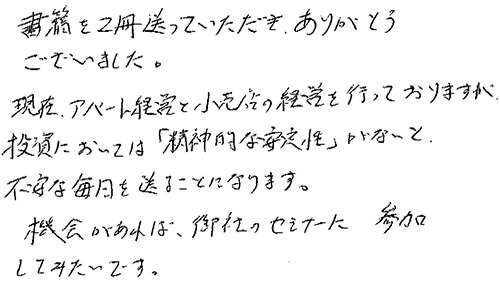 書籍を2冊送っていただき、ありがとう
ございました。
現在、アパート経営と小売店の経営を行っておりますが、
投資においては「精神的な安定性」がないと、
不安な毎日を送ることになります。
機会があれば、御社のセミナーに 参加
してみたいです。